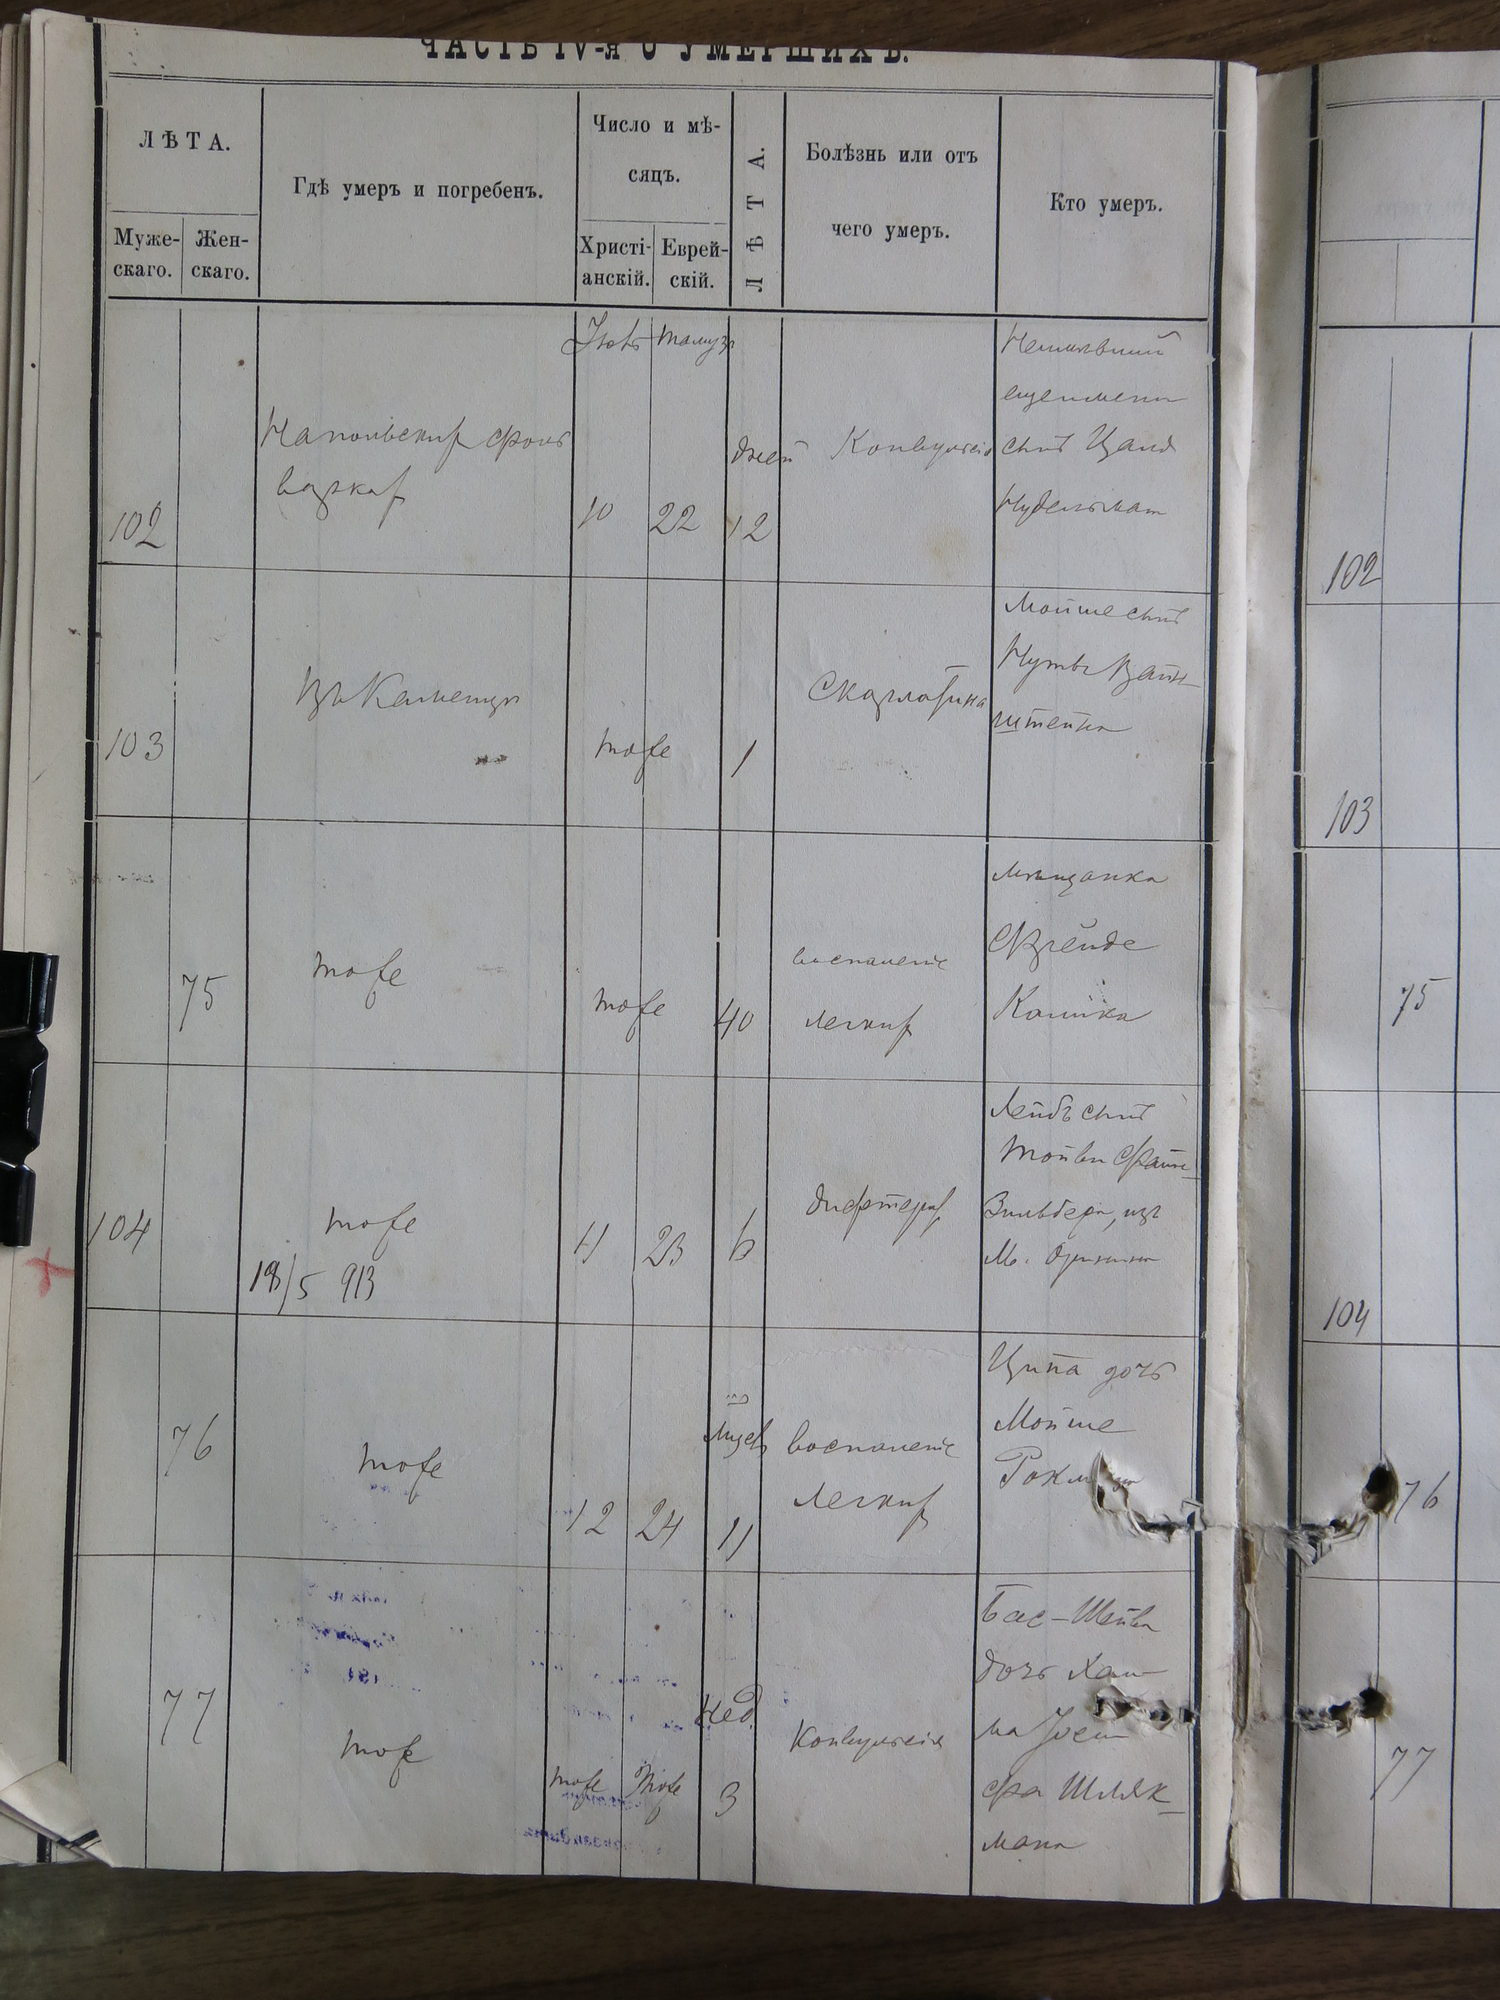 ЧАСТЬ IV-я О УМЕРШИХЪ.
ЛѢТА.
Мужескаго.
Женскаго.
Гдѣ умеръ и погребенъ.
Число и мѣ-
сяцъ.
Христі-
анскій.
Еврей-
скій.
ЛѢТА.
Болѣзнь или отъ
чего умеръ.
Кто умеръ.
102
фоль
варках
Іюль
10
Тамузъ
22
дней
12
Конвульсія
Неимѣвшій
еще имени
сынъ
Нудельман
103
Въ Каменцѣ
тоже
1
Скарлатина
Мойше сынъ
Нуты Вайн-
штейна
75
тоже
тоже
40
воспаленіе
легких
мѣщанка
Фрейде
104
тоже
18/5 913
11
23
6
дифтерит
Лейбъ сынъ
Тойвы
из
м.
76
тоже
12
24
11
воспаленіе
легких
Ципа дочь
Мойше
77
тоже
тоже
тоже
Нед.
3
Конвульсія
Бас-Шейва
дочь Хаи-
ма Іоси
фа Шпак-
мана
102
103
75
104
76
77